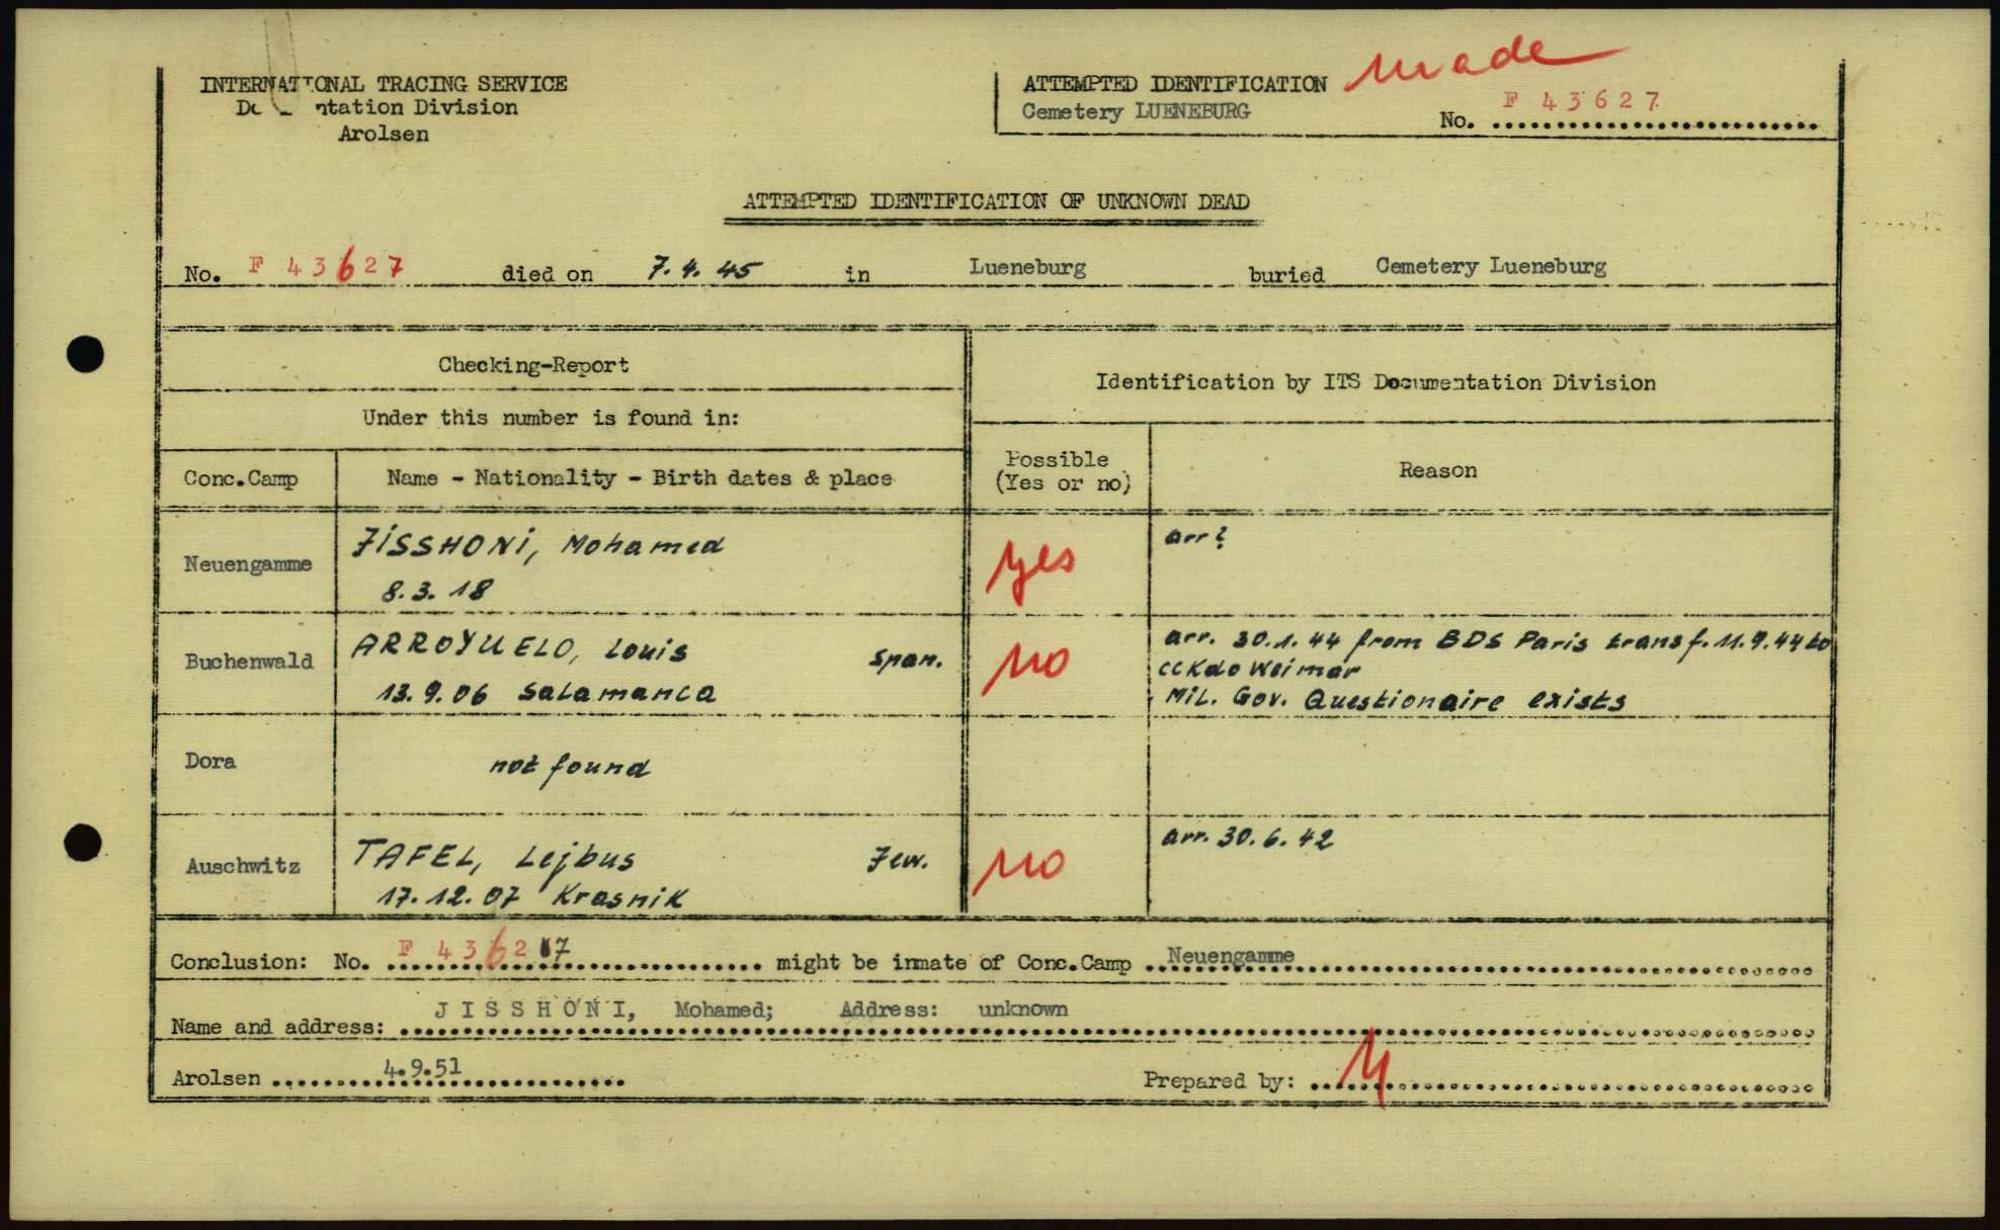 INTERNATIONAL TRACING SERVICE
Documentation Division
Arolsen
ATTEMPTED IDENTIFICATION made
Cemetery LUENEBURG
No. F 43627
ATTEMPTED IDENTIFICATION OF UNKNOWN DEAD
No. F 43627 died on 7.4.45 in Lueneburg buried Cemetery Lueneburg
Checking-Report
Identification by ITS Documentation Division
Under this number is found in:
Conc.Camp
Name - Nationality - Birth dates & place
Possible
(Yes or no)
Reason
Neuengamme
JISSHONI, Mohamed
8.3.18
yes
arr?
Buchenwald
ARROYUELO, Louis span.
13.9.06 Salamanca
no
arr. 30.1.44 from BDS Paris transf. 11.9.44 to
CC Kdo Weimar
Mil. Gov. Questionaire exists
Dora
not found
Auschwitz
TAFEL, Lejbus Jew.
17.12.07 Krasnik
no
arr. 30.6.42
Conclusion: No. F 43627 might be inmate of Conc.Camp Neuengamme
Name and address: JISSHONI, Mohamed; Address: unknown
Arolsen 4.9.51
Prepared by: